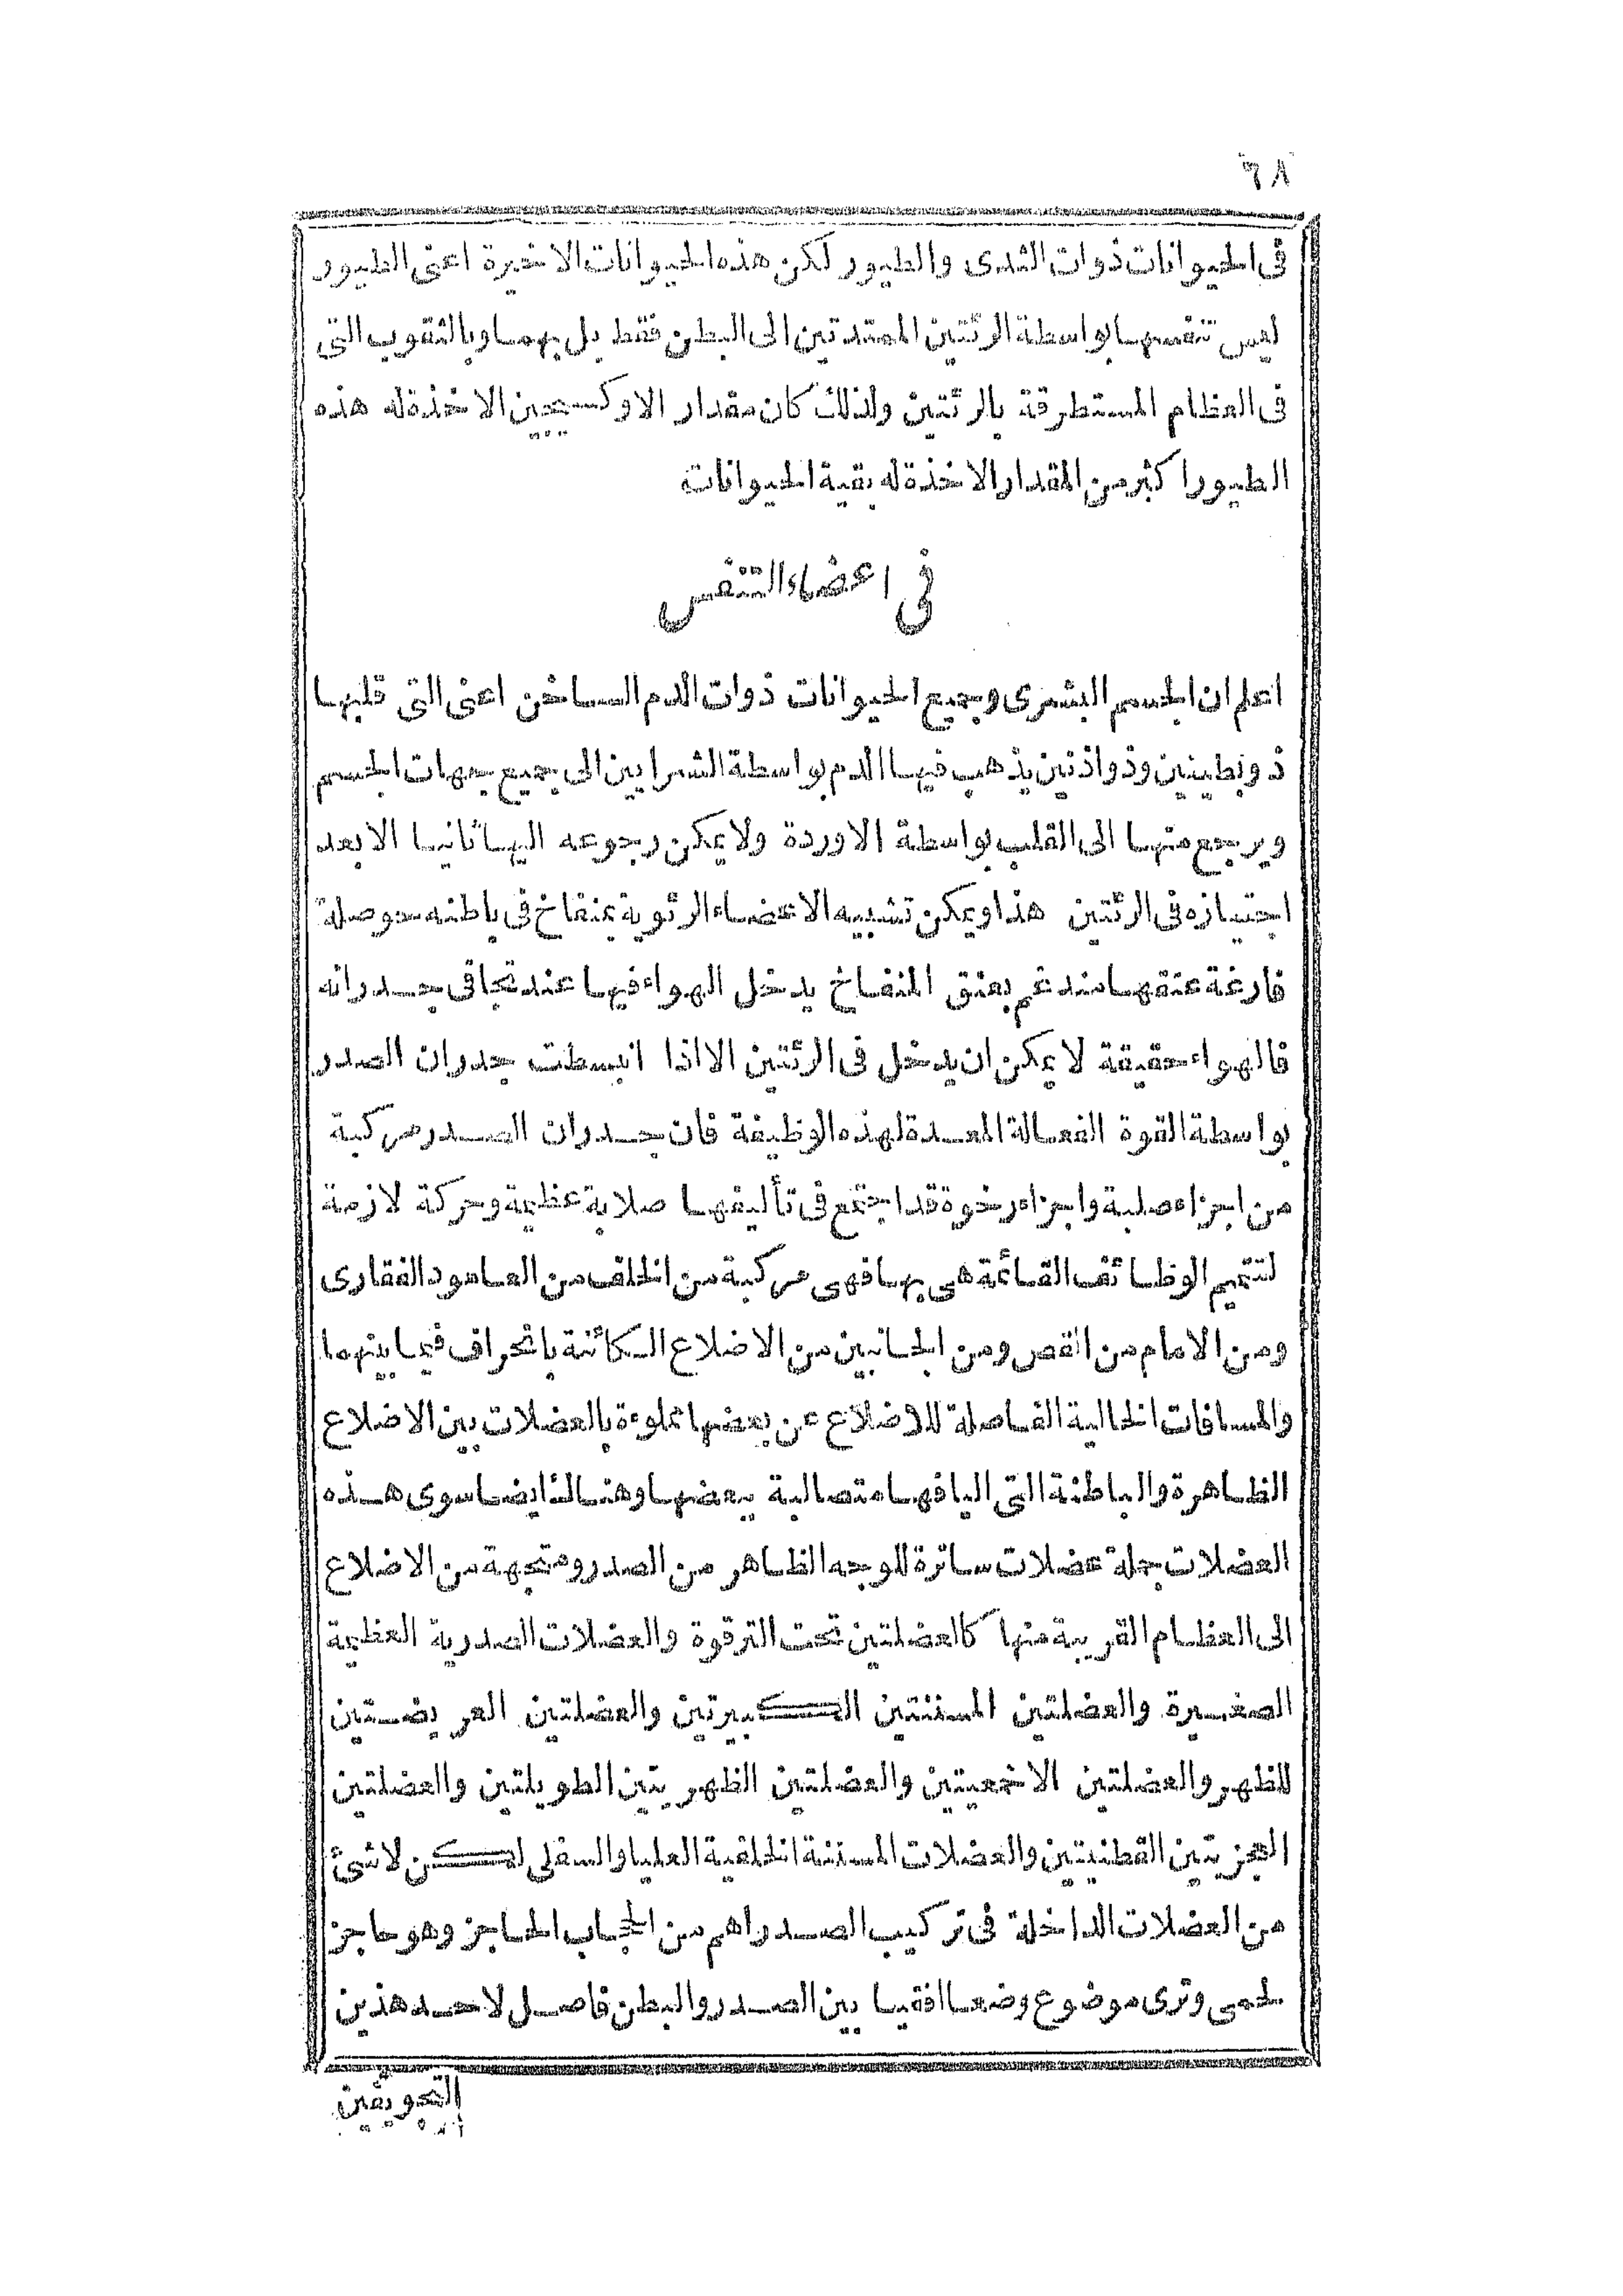 ٩٨
فى الحيوانات ذوات الثدى والطيور لكن هذه الحيوانات الاخيرة اعنى الطيور
ليس تنفسها بواسطة الرئتين الممتدتين الى البطن فقط بل بهما وبالثقوب التى
فى العظام المستطرقة بالرئتين ولذلك كان مقدار الاوكسيجين الاخذة له هذه
الطيور اكثر من المقدار الاخذة له بقية الحيوانات
فى اعضاء التنفس
اعلم ان الجسم البشرى وجميع الحيوانات ذوات الدم الساخن اعنى التى قلبها
ذو بطينين وذو اذنين يذهب فيها الدم بواسطة الشرايين الى جميع جهات الجسم
ويرجع منها الى القلب بواسطة الاوردة ولا يمكن رجوعه اليها ثانيا الا بعد
اجتيازه فى الرئتين هذا ويمكن تشبيه الاعضاء الرئوية بمنفاخ فى باطنه حوصلة
فارغة عنقها مندغم بعنق المنفاخ يدخل الهواء فيها عند تجافى جدرانه
فالهواء حقيقة لا يمكن ان يدخل فى الرئتين الا اذا انبسطت جدران الصدر
بواسطة القوة الفعالة المعدة لهذه الوظيفة فان جدران الصدر مركبة
من اجزاء صلبة واجزاء رخوة قد اجتمع فى تأليفها صلابة عظيمة وحركة لازمة
لتتميم الوظائف القائمة هى بها فهى مركبة من الخلف من العامود الفقارى
ومن الامام من القص ومن الجانبين من الاضلاع الكائنة بانحراف فيما بينهما
والمسافات الخالية الفاصلة للاضلاع عن بعضها مملوءة بالعضلات بين الاضلاع
الظاهرة والباطنة التى اليافها متصالبة ببعضها وهناك ايضا سوى هذه
العضلات جملة عضلات ساترة للوجه الظاهر من الصدر ومتجهة من الاضلاع
الى العظام القريبة منها كالعضلتين تحت الترقوة والعضلات الصدرية العظيمة
الصغيرة والعضلتين المسننتين الكبيرتين والعضلتين العريضتين
للظهر والعضلتين الاخمعيتين والعضلتين الظهريتين الطويلتين والعضلتين
العجزيتين القطنيتين والعضلات المسننة الخلفية العليا والسفلى لكن لاشئ
من العضلات الداخلة فى تركيب الصدر اهم من الحجاب الحاجز وهو حاجز
لحمى وترى موضوع وضعا افقيا بين الصدر والبطن فاصل لاحد هذين
التجويفين